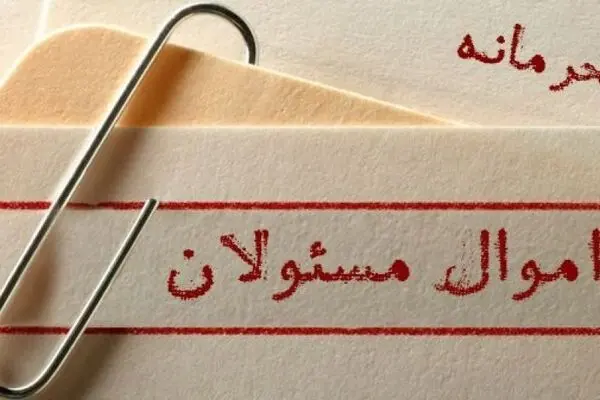 حرمانه
اموال مسئولان